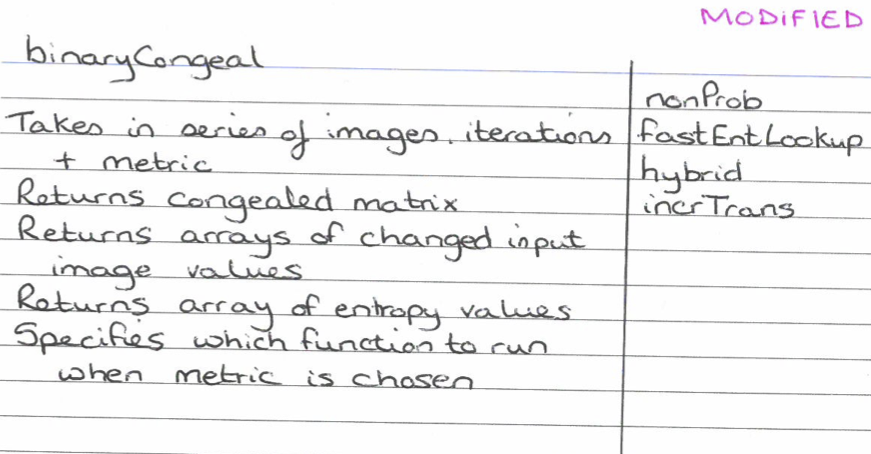 MODIFIED
binaryCongeal
Takes in series of images, iterations
+ metric
Returns congealed matrix
Returns arrays of changed input
image values
Returns array of entropy values
Specifies which function to run
when metric is chosen
nonProb
fastEntLookup
hybrid
incrTrans